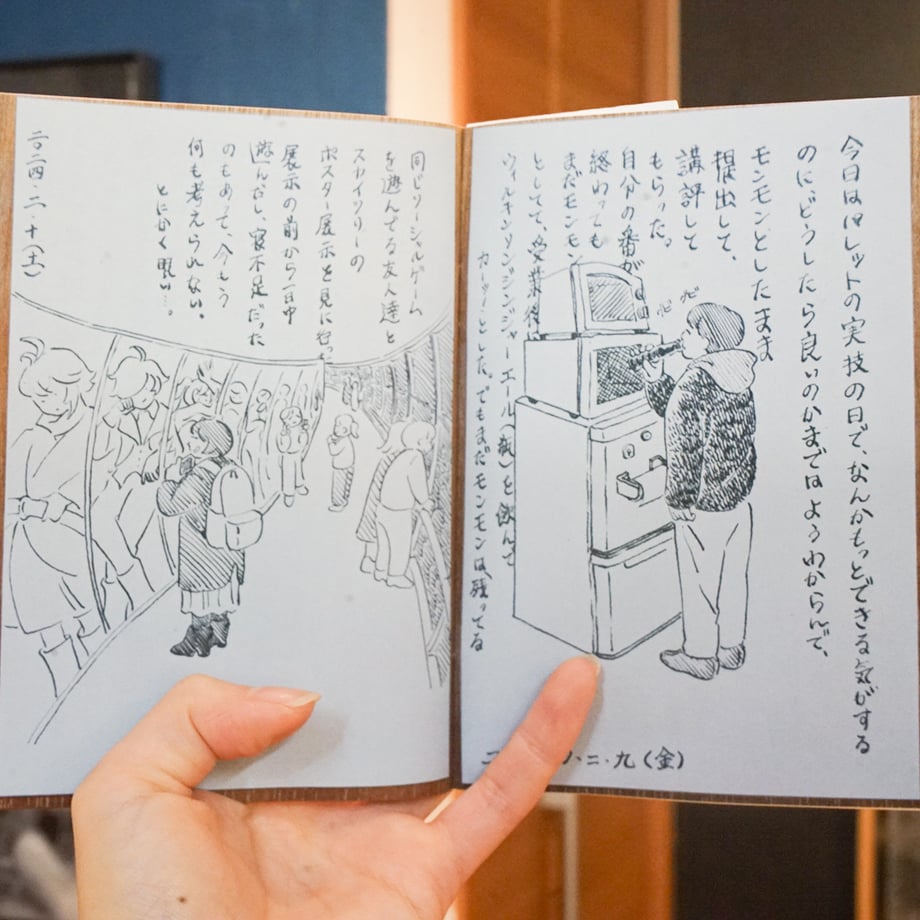 今日はロレットの実技の日で、なんかもっとできる気がする
のに、どうしたら良いのかまではよぅわからんで、
モンモンとしたまま
提出して、
講評して
もらった。
自分の番が
終わっても
まだモンモン
としてて、受業後
ウィルキンソンジンジャーエール(瓶)を飲んで
カーッ!とした。でもまだモンモンは残ってる
ゴビ ゴビ
二・九(金)
同じソーシャルゲーム
を遊んでる友人達と
スカイツリーの
ポスター展示を見に行った
展示の前から一日中
遊んだし、寝不足だった
のもあって、今もう
何も考えられない。
とにかく眠い…。
二〇二四・二・十(土)